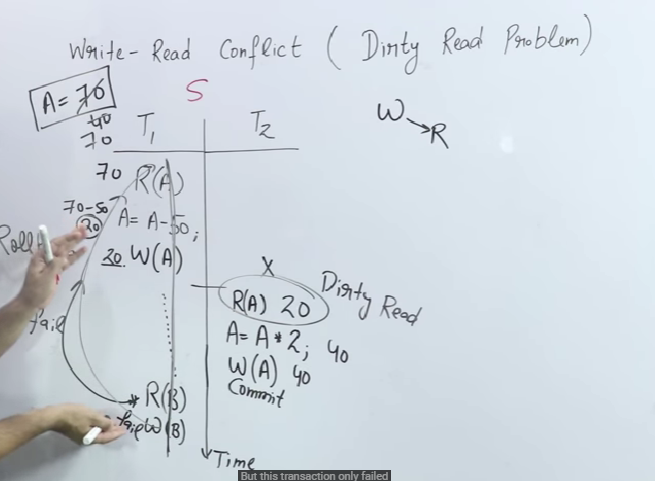 Write-Read Conflict (Dirty Read Problem)
A = 70
40
70
S
T1 T2
W → R
70 R(A)
70-50
20 A = A-50;
20 W(A)
Roll
fail
X
R(A) 20 Dirty Read
A = A * 2; 40
W(A) 40
Commit
R(B)
fail W(B)
Time
But this transaction only failed